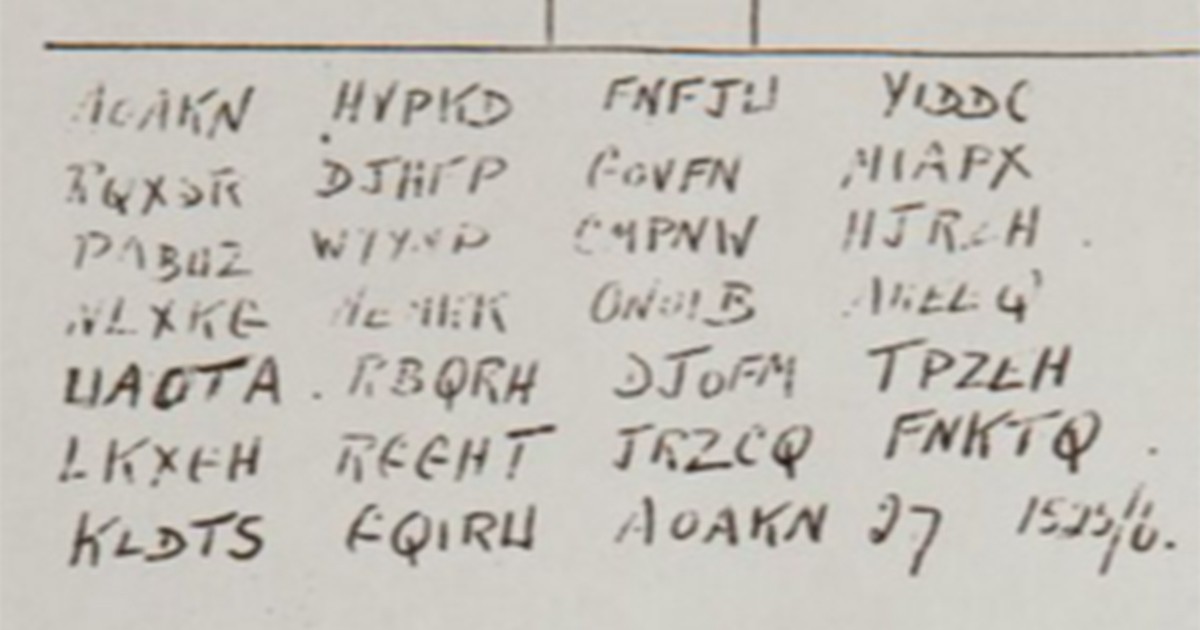 AOAKN HVPKD FNFJU YIDDC
RQXSR DJHFP GOVFN MIAPX
PABUZ WYYNP CMPNW HJRZH
NLXKG ONOIB
UAOTA RBQRH DJOFM TPZEH
LKXGH RGGHT JRZCQ FNKTQ
KLDTS GQIRU AOAKN 27 1525/6.